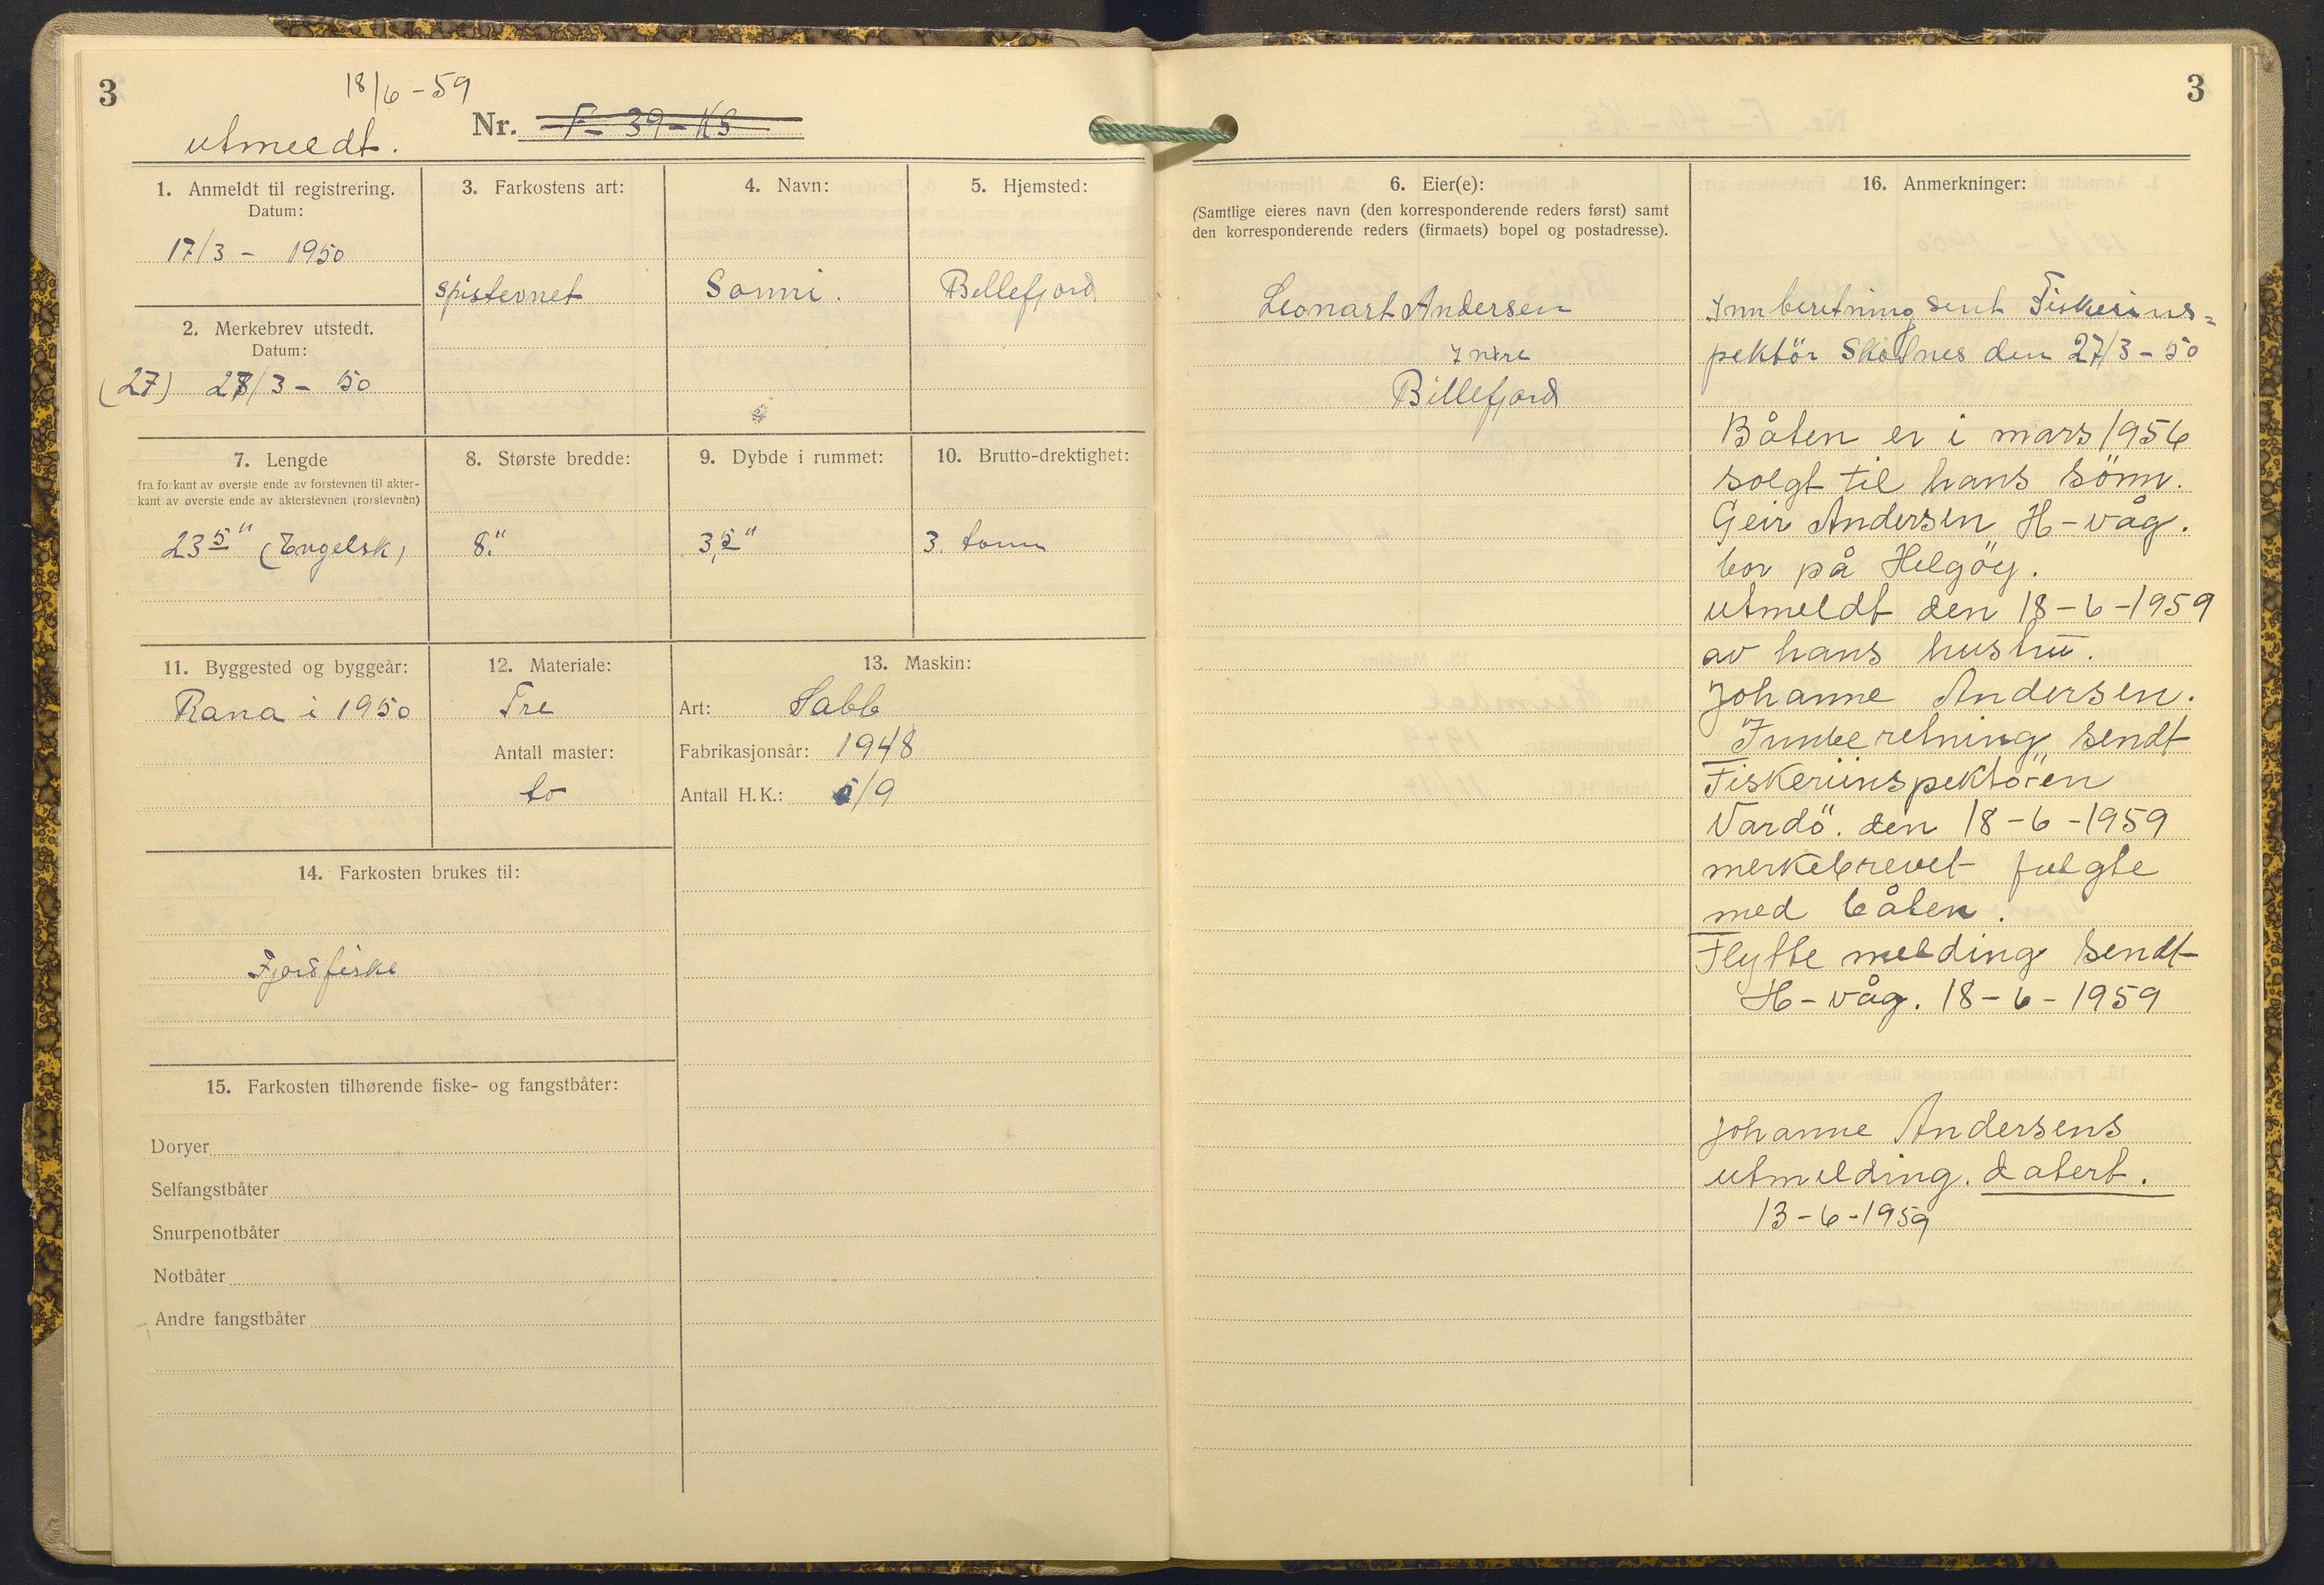 3
18/6-59
utmeldt.
Nr. F-39-KS
1. Anmeldt til registrering.
Datum:
17/3 - 1950
2. Merkebrev utstedt.
Datum:
(27) 28/3 - 50
3. Farkostens art:
spisternet
4. Navn:
Sonni.
5. Hjemsted:
Billefjord
7. Lengde
fra forkant av øverste ende av forstevnen til akter-
kant av øverste ende av akterstevnen (rorstevnen)
23 5" (Engelsk)
8. Største bredde:
8."
9. Dybde i rummet:
3,5"
10. Brutto-drektighet:
3. tonn
11. Byggested og byggeår:
Rana i 1950
12. Materiale:
Tre
Antall master:
to
13. Maskin:
Art: Sabb
Fabrikasjonsår: 1948
Antall H.K.: /9
14. Farkosten brukes til:
Fjordfiske
15. Farkosten tilhørende fiske- og fangstbåter:
Doryer
Selfangstbåter
Snurpenotbåter
Notbåter
Andre fangstbåter
3
6. Eier(e):
(Samtlige eieres navn (den korresponderende reders først) samt
den korresponderende reders (firmaets) bopel og postadresse).
Leonart Andersen
Indre
Billefjord
16. Anmerkninger:
Innberetning sent Fiskerins=
pektör Skotnes den 27/3-50
Båten er i mars 1956
solgt til hans sönn.
Geir Andersen H-våg.
bor på Helgöy.
utmeldt den 18-6-1959
av hans hustru.
Johanne Andersen.
Innberetning sendt
Fiskeriinspektören
Vardö. den 18-6-1959
merkebrevet fulgte
med båten.
Flytte melding sendt
H-våg. 18-6-1959
Johanne Andersens
utmelding. datert.
13-6-1959